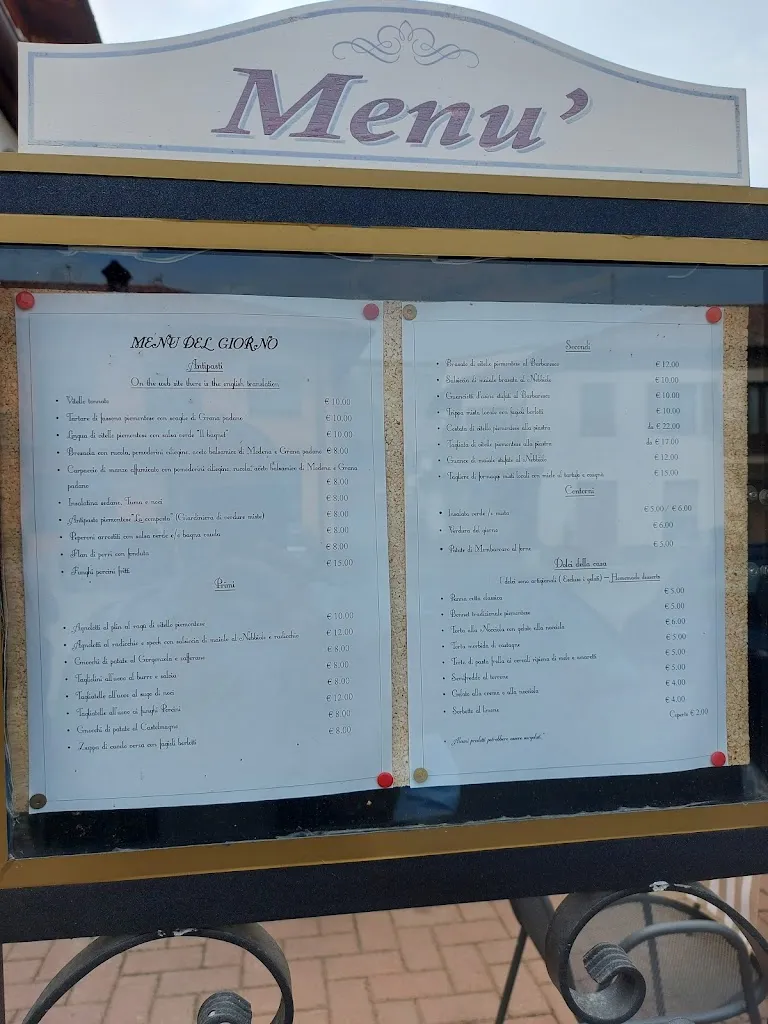 Menu'
MENU DEL GIORNO
Antipasti
On the web site there is the english translation
• Vitello tonnato € 10.00
• Tartare di fassona piemontese con scaglie di Grana padano € 10.00
• Lingua di vitello piemontese con salsa verde "Il bagnet" € 10.00
• Bresaola con rucola, pomodorini ciliegino, aceto balsamico di Modena e Grana padano € 8.00
• Carpaccio di manzo affumicato con pomodorini ciliegino, rucola, aceto balsamico di Modena e Grana
padano € 8.00
• Insalatina sedano, Toma e noci € 8.00
• Antipasto piemontese "La composta" (Giardiniera di verdure miste) € 8.00
• Peperoni arrostiti con salsa verde e/o bagna cauda € 8.00
• Flan di porri con fonduta € 8.00
• Funghi porcini fritti € 15.00
Primi
• Agnolotti al plin al ragù di vitello piemontese € 10.00
• Agnolotti al radicchio e speck con salsiccia di maiale al Nebbiolo e radicchio € 12.00
• Gnocchi di patate al Gorgonzola e zafferano € 8.00
• Tagliolini all'uovo al burro e salvia € 8.00
• Tagliatelle all'uovo al sugo di noci € 8.00
• Tagliatelle all'uovo ai funghi Porcini € 12.00
• Gnocchi di patate al Castelmagno € 8.00
• Zuppa di cavolo verza con fagioli borlotti € 8.00
Secondi
• Brasato di vitello piemontese al Barbaresco € 12.00
• Salsiccia di maiale brasata al Nebbiolo € 10.00
• Guancietti d'asino stufati al Barbaresco € 10.00
• Trippa mista locale con fagioli borlotti € 10.00
• Costata di vitello piemontese alla piastra da € 22.00
• Tagliata di vitello piemontese alla piastra da € 17.00
• Guance di maiale stufate al Nebbiolo € 12.00
• Tagliere di formaggi misti locali con miele al tartufo e cugnà € 15.00
Contorni
• Insalata verde /o mista € 5.00 / € 6.00
• Verdura del giorno € 6.00
• Patate di Mombarcaro al forno € 5.00
Dolci della casa
I dolci sono artigianali ( Escluso i gelati) – Homemade desserts
• Panna cotta classica € 5.00
• Bonnet tradizionale piemontese € 5.00
• Torta alla Nocciola con gelato alla nocciola € 6.00
• Torta morbida di castagne € 5.00
• Torta di pasta frolla ai cereali ripiena di mele e amaretti € 5.00
• Semifreddo al torrone € 5.00
• Gelato alla crema o alla nocciola € 4.00
• Sorbetto al limone € 4.00
Coperto € 2.00
• Alcuni prodotti potrebbero essere surgelati."